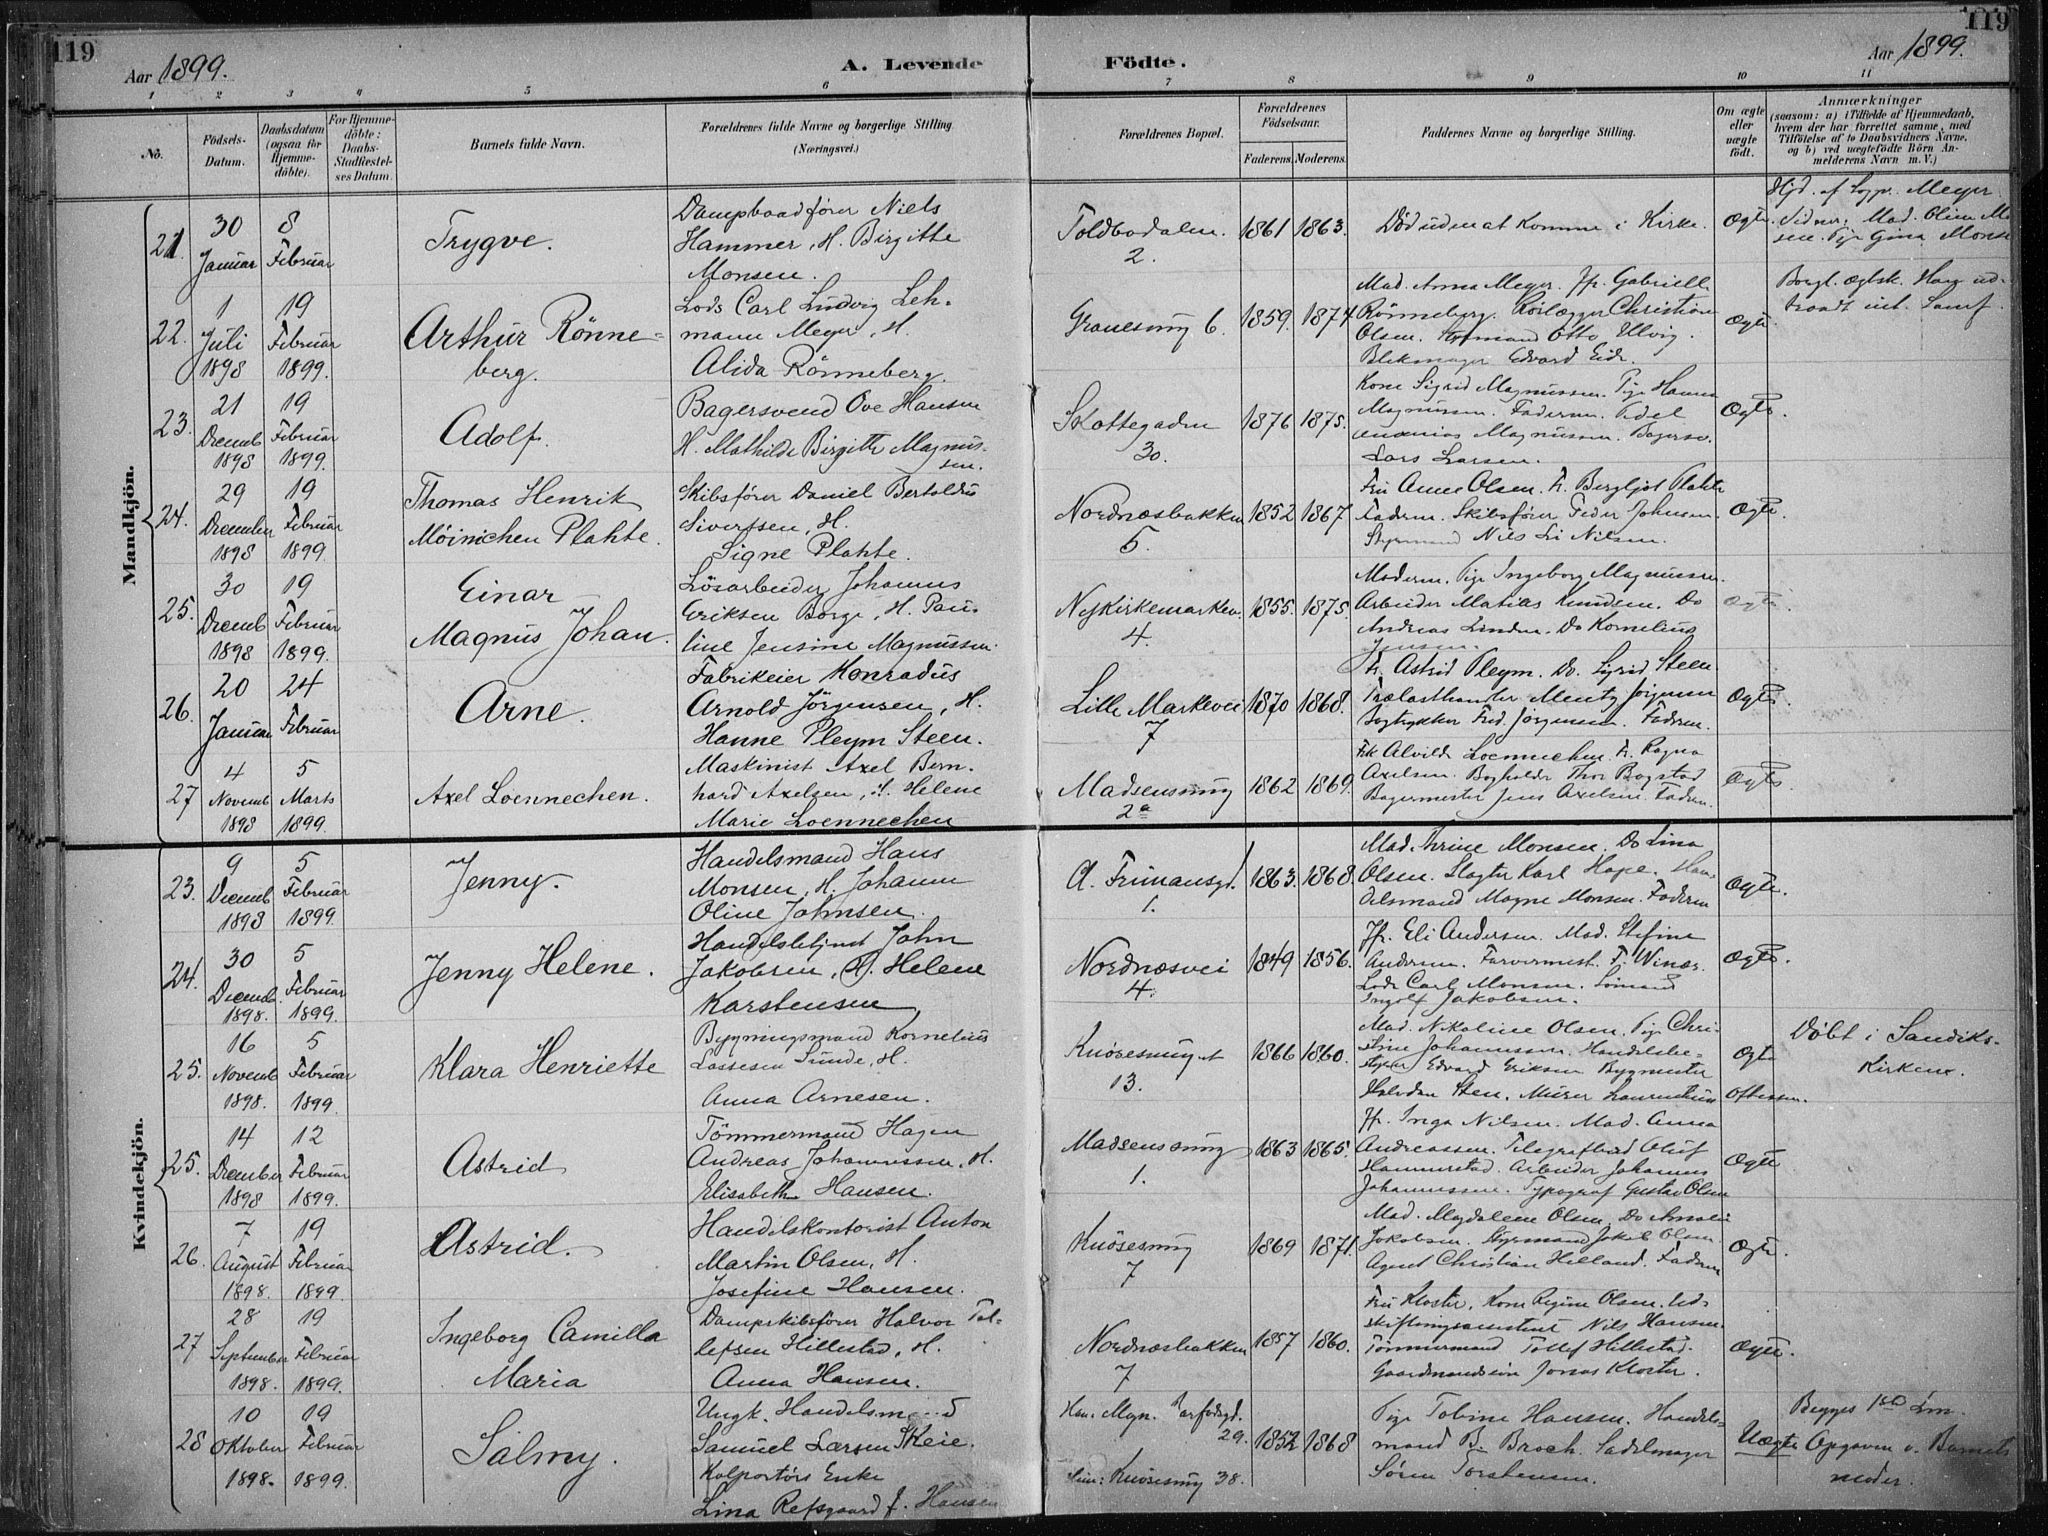 119
119
Aar 1899.
A. Levende Födte.
Aar 1899.
1 2 3 4 5 6 7 8 9 10 11
No.
Födsels-
Datum.
Daabsdatum
(ogsaa for
Hjemme-
döbte).
For Hjemme-
döbte:
Daabs-
Stadfestel-
ses Datum.
Barnets fulde Navn.
Forældrenes fulde Navne og borgerlige Stilling
(Næringsvei.)
Forældrenes Bopæl.
Forældrenes
Födselsaar.
Faderens. Moderens.
Faddernes Navne og borgerlige Stilling.
Om ægte
eller
uægte
födt.
Anmærkninger
(saasom: a) i Tilfælde af Hjemmedaab,
hvem der har forrettet samme, med
Tilföielse af to Daabsvidners Navne,
og b) ved uægtefödte Börn An-
melderens Navn m. V.)
Mandkjön.
21.
30
Januar
8
Februar
Trygve.
Dampbaadförer Niels
Hammer, H. Birgitte
Monsen.
Toldbodalm.
2.
1861 1863.
Död uden at komme i Kirke.
Ægte.
Hjd. af Sogpr. Meyer
Vidner: Mad. Oline Mo
sen. Pige Gina Monse
22.
1
Juli
1898
19
Februar
1899.
Arthur Rönne-
berg.
Lods Carl Ludvig Leh-
mann Meyer, H.
Alida Rönneberg.
Granesmug 6.
1859. 1874
Mad. Anna Meyer. Jfr. Gabrielle
Rönneberg. Christian
Olsen. Otto Ulvig.
Blikmager Edvard Eide.
Ægte.
Borgl. ægtsk. Han ud-
traadt int. Samf.
23.
21
Decemb
1898
19
Februar
1899.
Adolf.
Bagersvend Ove Hansen
H. Mathilde Birgitte Magnus-
sen.
Skottegaden
30.
1876 1875.
Kone Sigrid Magnussen. Pige Hanna
Magnussen. Faderen. Pedel
Magnussen. Bagersv.
Lars Larsen.
Ægte.
24.
29
December
1898
19
Februar
1899.
Thomas Henrik
Möinichen Plahte.
Skibsförer Daniel Bertoldus
Sivertsen, H.
Signe Plahte.
Nordnæsbakken
5.
1852 1867
Fru Anne Olsen. Fr. Bergljot Plahte
Faderen. Skibsförer Peder Johnsen.
Styrmand Nils Li Nilsen.
Ægte.
25.
30
Decemb
1898
19
Februar
1899.
Einar
Magnus Johan.
Lösarbeider Johannes
Eriksen Borge, H. Pau-
line Jensine Magnussen.
Nykirkemarken.
4.
1855. 1875.
Moderen. Pige Ingeborg Magnussen.
Arbeider Matias Knudsen. Do
Andreas Linden. Do Kornelius
Jensen.
Ægte.
26.
20
Januar
24
Februar
Arne.
Fabrikeier Konradus
Arnold Jörgensen, H.
Hanne Pleym Steen.
Lille Markevei
7
1870 1868.
Fr. Astrid Pleym. Do. Sigrid Steen
Trælasthandler Mentz Jörgensen
Bogtrykker Fred. Jörgensen. Faderen.
Ægte.
27
4
Novemb
1898
5
Marts
1899.
Axel Loennechen.
Maskinist Axel Bern-
hard Axelsen, H. Helene
Marie Loennechen
Madsensmug
2a
1862 1869.
Frk Alvilde Loennechen. Fr. Ragna
Axelsen. Bogholder Thor Bogstad
Bagermester Jens Axelsen. Faderen.
Ægte.
Kvindekjön.
23.
9
Decemb
1898
5
Februar
1899.
Jenny.
Handelsmand Hans
Monsen, H. Johanne
Oline Johnsen.
A. Frimansgd.
1.
1863. 1868.
Mad. Trine Monsen. Do Lina
Olsen. Slagter Karl Hope. Han-
delsmand Mogne Monsen. Faderen
Ægte.
24.
30
Decemb.
1898.
5
Februar
1899.
Jenny Helene.
Handelsbetjent John
Jakobsen, H. Helene
Karstensen
Nordnæsvei
4.
1849 1856.
Jfr. Eli Andersen. Mad. Stefine
Andersen. Farvermest. F. Winær.
Lods Carl Monsen. Sömand
Ingolf Jakobsen.
Ægte.
25.
16
Novemb
1898.
5
Februar
1899.
Klara Henriette
Bygningsmand Kornelius
Lassesen Sunde, H.
Anna Arnesen.
Knösesmuget
13.
1866 1860.
Mad. Nikoline Olsen. Pige Chri-
stine Johannessen. Handelsbe-
styrer Edvard Eriksen Bygmester
Halvdan Steen. Murer Laurentius Oftessen.
Ægte
Döbt i Sandviks-
kirken.
25.
14
December
1898
12
Februar
1899.
Astrid
Tömmermand Hagen
Andreas Johannessen, H.
Elisabeth Hansen.
Madsenssmug
1.
1863 1865.
Jfr. Inga Nilsen. Mad. Anna
Andreassen. Telegrafbud Oluf
Hammerstad. Arbeider Johannes
Johannessen. Typograf Gustav Olsen
Ægte
26.
7
August
1898.
19
Februar
1899.
Astrid.
Handelskontorist Anton
Martin Olsen, H.
Josefine Hansen.
Knösesmug
7
1869 1871.
Mad. Magdalene Olsen. Do Amalie
Jakobsen. Styrmand Jakob Olsen
Agent Christian Helland. Faderen
Ægte.
27
28
September
1898.
19
Februar
1899.
Ingeborg Camilla
Maria
Dampskibsförer Halvor Tol-
lefsen Hillestad, H.
Anna Hansen.
Nordnæsbakken
7
1857 1860.
Fru Kloster. Kone Regine Olsen. Ud-
skiftningsassistent Nils Hansen.
Tömmermand Tollef Hillestad.
Gaardmandssön Jonas Kloster.
Ægte.
28
10
Oktober
1898.
19
Februar
1899.
Salmy.
Ungk. Handelsmand
Samuel Larsen Skeie.
Kolportörs Enke
Lina Refsgaard f. Hansen
Han: Mgn. Barfodsgd.
29.
Hun: Knösesmug 38.
1852 1868
Pige Tobine Hansen. Handels-
mand B. Broch. Sadelmager
Sören Torstensen.
Uægte
Begges 1ste Lm.
Opgaven v. Barnets
moder.